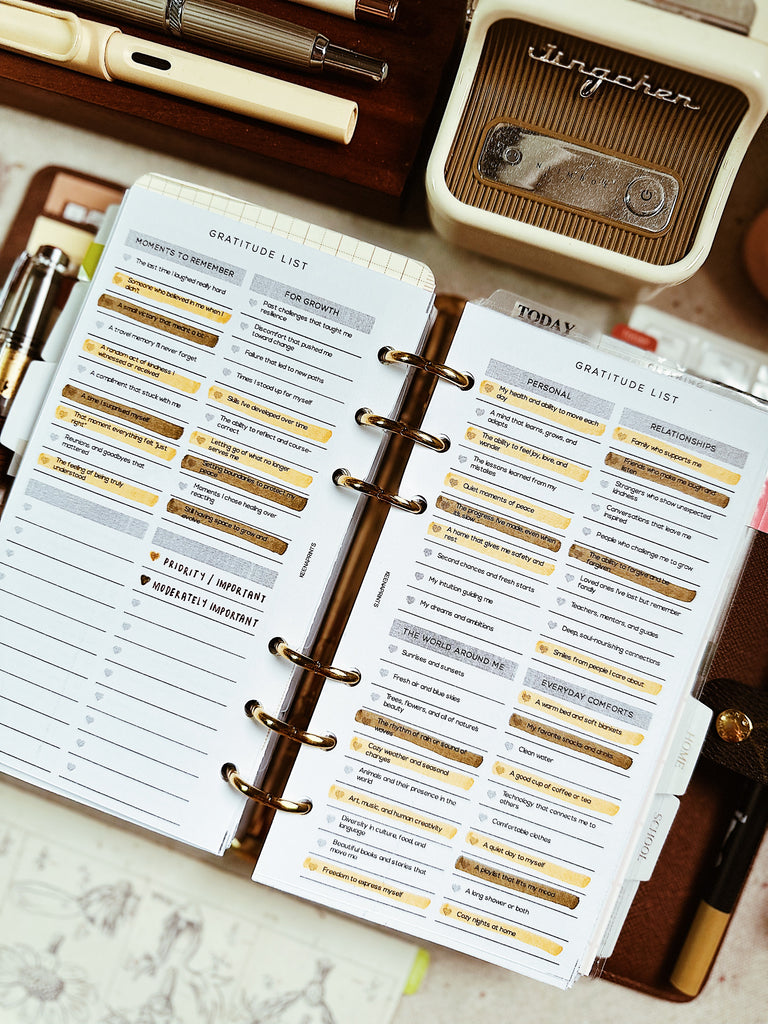 Jingchen
TODAY
GRATITUDE LIST
MOMENTS TO REMEMBER
The last time I laughed really hard
Someone who believed in me when I
didn't
A small victory that meant a lot
A travel memory I'll never forget
A random act of kindness I
witnessed or received
A compliment that stuck with me
A time I surprised myself
That moment everything felt "just
right"
Reunions and goodbyes that
mattered
The feeling of being truly
understood
FOR GROWTH
Past challenges that taught me
resilience
Discomfort that pushed me
toward change
Failure that led to new paths
Times I stood up for myself
Skills I've developed over time
The ability to reflect and course-
correct
Letting go of what no longer
serves me
Setting boundaries to protect my
peace
Moments I chose healing over
reacting
Still having space to grow and
evolve
PRIORITY / IMPORTANT
MODERATELY IMPORTANT
KEENAPRINTS
GRATITUDE LIST
PERSONAL
My health and ability to move each
day
A mind that learns, grows, and
adapts
The ability to feel joy, love, and
wonder
The lessons learned from my
mistakes
Quiet moments of peace
The progress I've made, even when
it's slow
A home that gives me safety and
rest
Second chances and fresh starts
My intuition guiding me
My dreams and ambitions
THE WORLD AROUND ME
Sunrises and sunsets
Fresh air and blue skies
Trees, flowers, and all of nature's
beauty
The rhythm of rain or sound of
waves
Cozy weather and seasonal
changes
Animals and their presence in the
world
Art, music, and human creativity
Diversity in culture, food, and
language
Beautiful books and stories that
move me
Freedom to express myself
RELATIONSHIPS
Family who supports me
Friends who make me laugh and
listen
Strangers who show unexpected
kindness
Conversations that leave me
inspired
People who challenge me to grow
The ability to forgive and be
forgiven
Loved ones I've lost but remember
fondly
Teachers, mentors, and guides
Deep, soul-nourishing connections
Smiles from people I care about
EVERYDAY COMFORTS
A warm bed and soft blankets
My favorite snacks and drinks
Clean water
A good cup of coffee or tea
Technology that connects me to
others
Comfortable clothes
A quiet day to myself
A playlist that lifts my mood
A long shower or bath
Cozy nights at home
KEENAPRINTS
HOME
SCHOOL